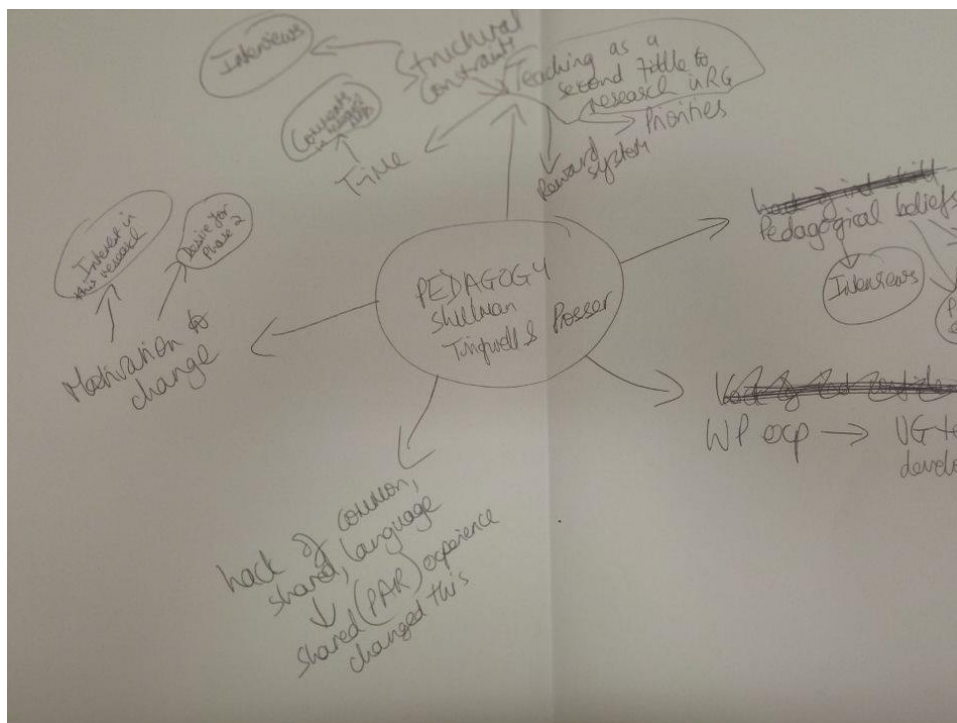 Interviews
Structural
constraints
Teaching as a
second fiddle to
research in RG
Priorities
Reward
system
Time
Comments
Interest in
this research
Desire for
Phase 2
Motivation to
change
PEDAGOGY
Shulman
& Prosser
Pedagogical beliefs
Interviews
P
WP exp → UG
develo
Lack of common,
shared, language
↓
shared (PAR) experience
changed this